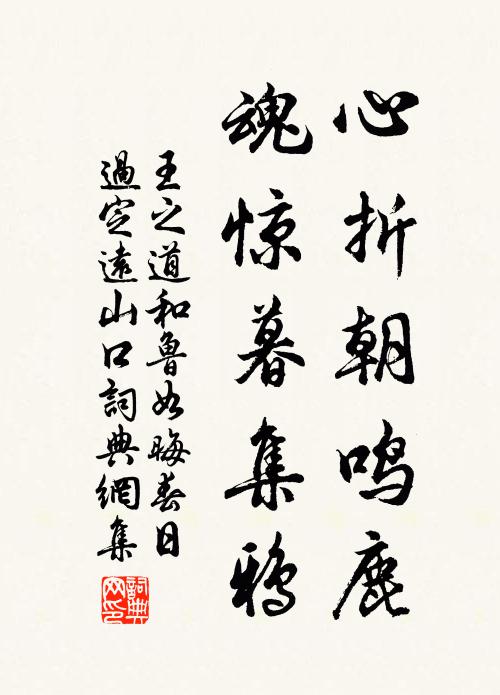 心折朝鸣鹿
魂惊暮集鸦
王之道和鲁如晦春日
過定遠山口詞典網集
詞典
网印